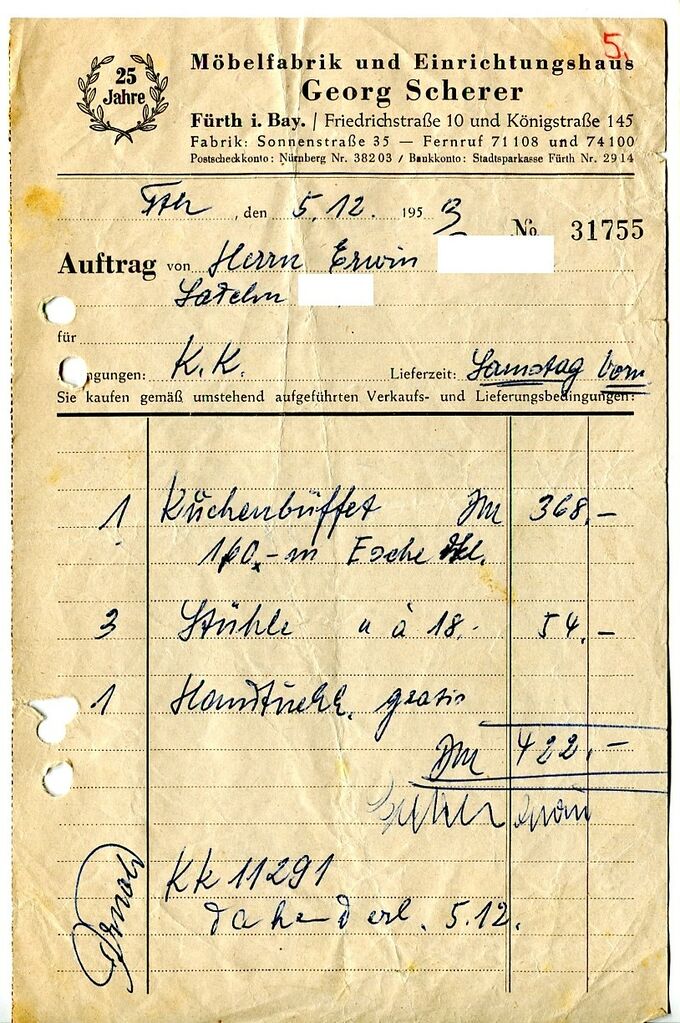 5.
25
Jahre
Möbelfabrik und Einrichtungshaus
Georg Scherer
Fürth i. Bay. / Friedrichstraße 10 und Königstraße 145
Fabrik: Sonnenstraße 35 — Fernruf 71108 und 74100
Postscheckkonto: Nürnberg Nr. 38203 / Bankkonto: Stadtsparkasse Fürth Nr. 2914
Fth, den 5.12. 1953
No 31755
Auftrag von Herrn Erwin
für
ngungen: K.K. Lieferzeit: Samstag Vorm
Sie kaufen gemäß umstehend aufgeführten Verkaufs- und Lieferungsbedingungen:
1 Küchenbüffet DM 368.-
Esche
3 Stühle " à 18.- 54.-
1 gratis
DM 422.-
KK 11291
erl. 5.12.